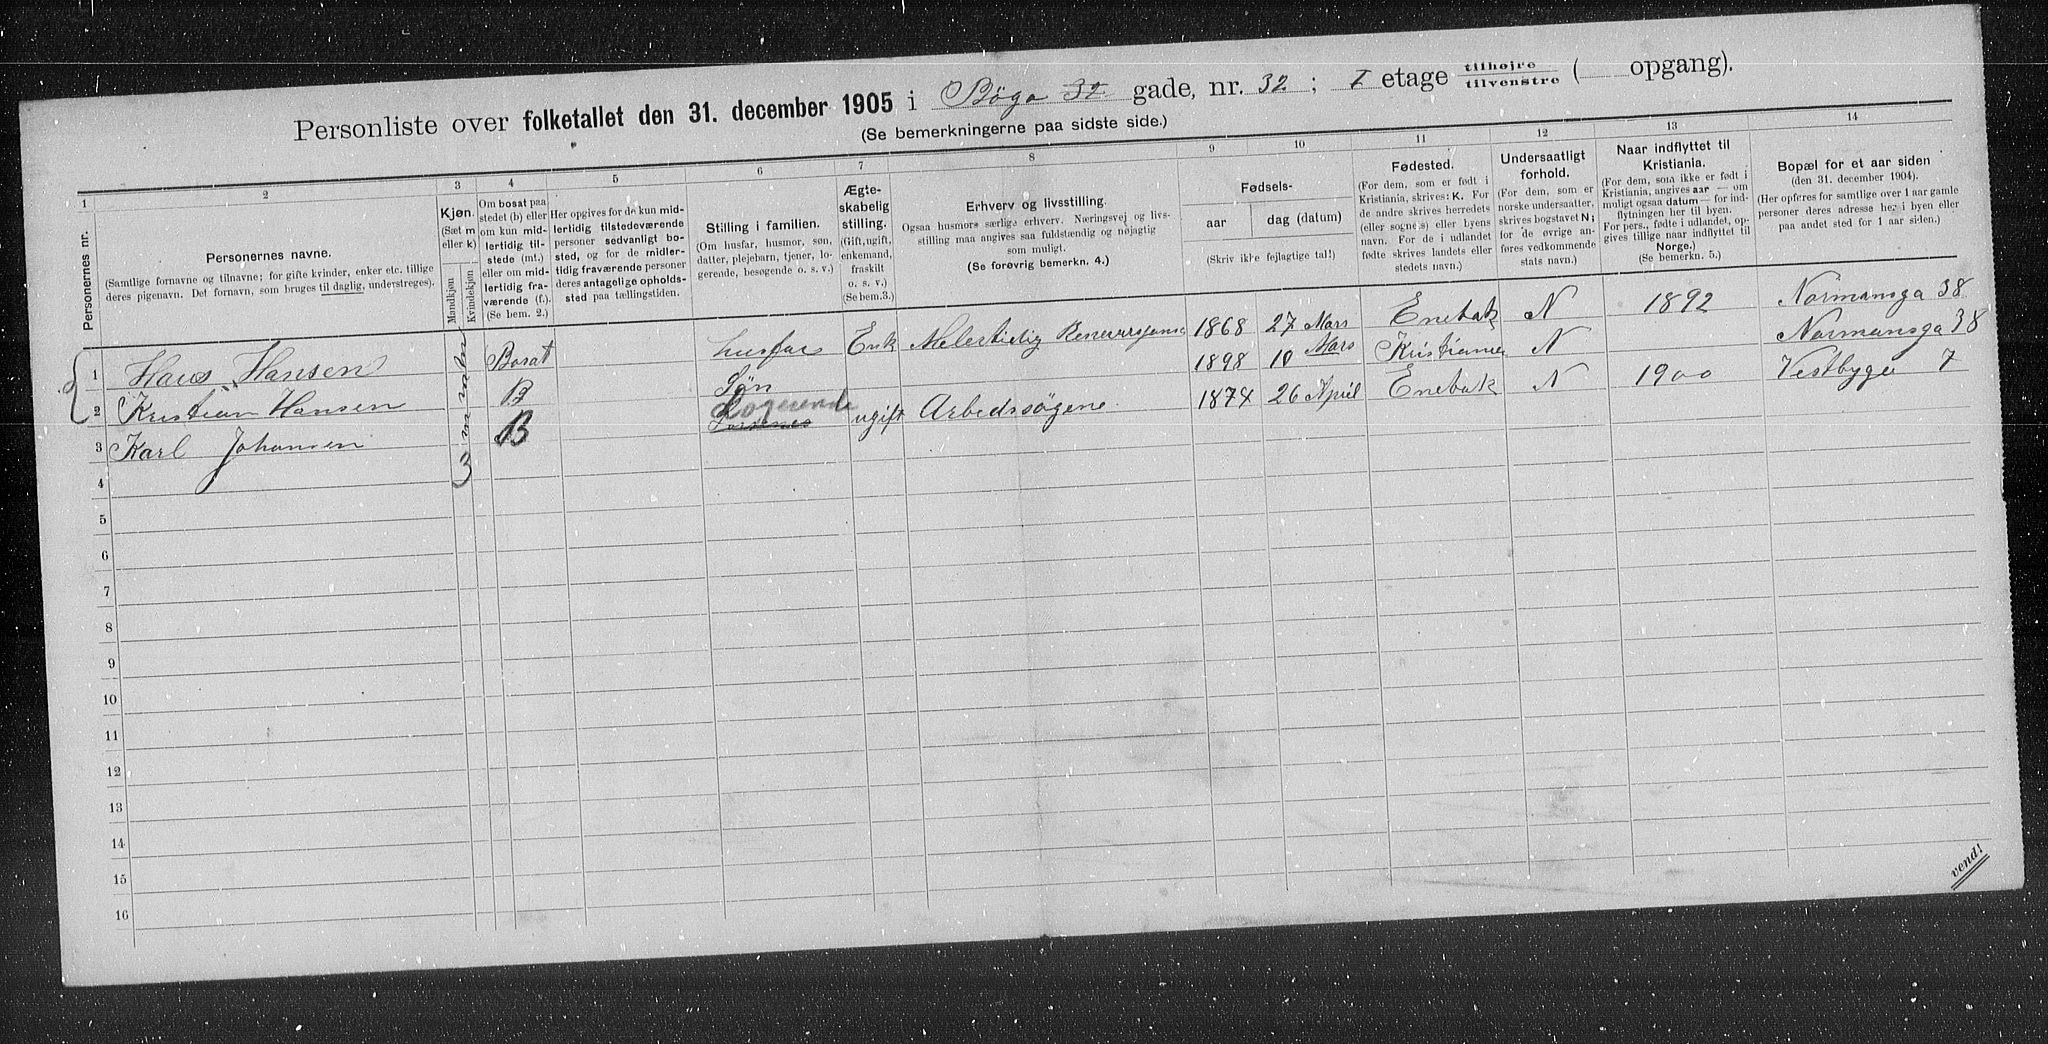 Personliste over folketallet den 31. december 1905 i Bøga 32 gade, nr. 32; I etage tilhøjre tilvenstre ( opgang).
(Se bemerkningerne paa sidste side.)
1 2 3 4 5 6 7 8 9 10 11 12 13 14
Personernes nr.
Personernes navne.
(Samtlige fornavne og tilnavne; for gifte kvinder, enker etc. tillige
deres pigenavn. Det fornavn, som bruges til daglig, understreges).
Kjøn.
(Sæt m
eller k)
Mandkjøn
Kvindekjøn
Om bosat paa
stedet (b) eller
om kun mid-
lertidig til-
stede (mt.)
eller om mid-
lertidig fra-
værende (f.).
(Se bem. 2.)
Her opgives for de kun mid-
lertidig tilstedeværende
personer sedvanligt bo-
sted, og for de midler-
tidig fraværende personer
deres antagelige opholds-
sted paa tællingstiden.
Stilling i familien.
(Om husfar, husmor, søn,
datter, plejebarn, tjener, lo-
gerende, besøgende o. s. v.)
Ægte-
skabelig
stilling.
(Gift, ugift,
enkemand,
fraskilt
o. s. v.)
(Se bem.3.)
Erhverv og livsstilling.
Ogsaa husmors særlige erhverv. Næringsvej og livs-
stilling maa angives saa fuldstændig og nøjagtig
som muligt.
(Se forøvrig bemerkn. 4.)
Fødsels-
aar dag (datum)
(Skriv ikke fejlagtige tal!)
Fødested.
(For dem, som er født i
Kristiania, skrives: K. For
de andre skrives herredets
(eller sognets) eller byens
navn. For de i udlandet
fødte skrives landets eller
stedets navn.)
Undersaatligt
forhold.
(For dem, som er
norske undersaatter,
skrives bogstavet N;
for de øvrige an-
føres vedkommende
stats navn.)
Naar indflyttet til
Kristiania.
(For dem, som ikke er født i
Kristiania, angives aar — om
muligt ogsaa datum — for ind-
flytningen her til byen.
For pers., fødte i udlandet, op-
gives tillige naar indflyttet til
Norge.)
(Se bemerkn. 5.)
Bopæl for et aar siden
(den 31. december 1904).
(Her opføres for samtlige over 1 aar gamle
personer deres adresse her i byen eller
paa andet sted for 1 aar siden.)
1 Hans Hansen m Bosat husfar Enk 1868 27 Mars Enebak N 1892 Normansga 38
2 Kristian Hansen m B Søn 1898 10 Mars N Normansga 38
3 Karl Johansen m B Logerende ugift Arbedssøgene 1874 26 April Enebak N 1900 Vestbyga 7
3
4
5
6
7
8
9
10
11
12
13
14
15
16
vend!